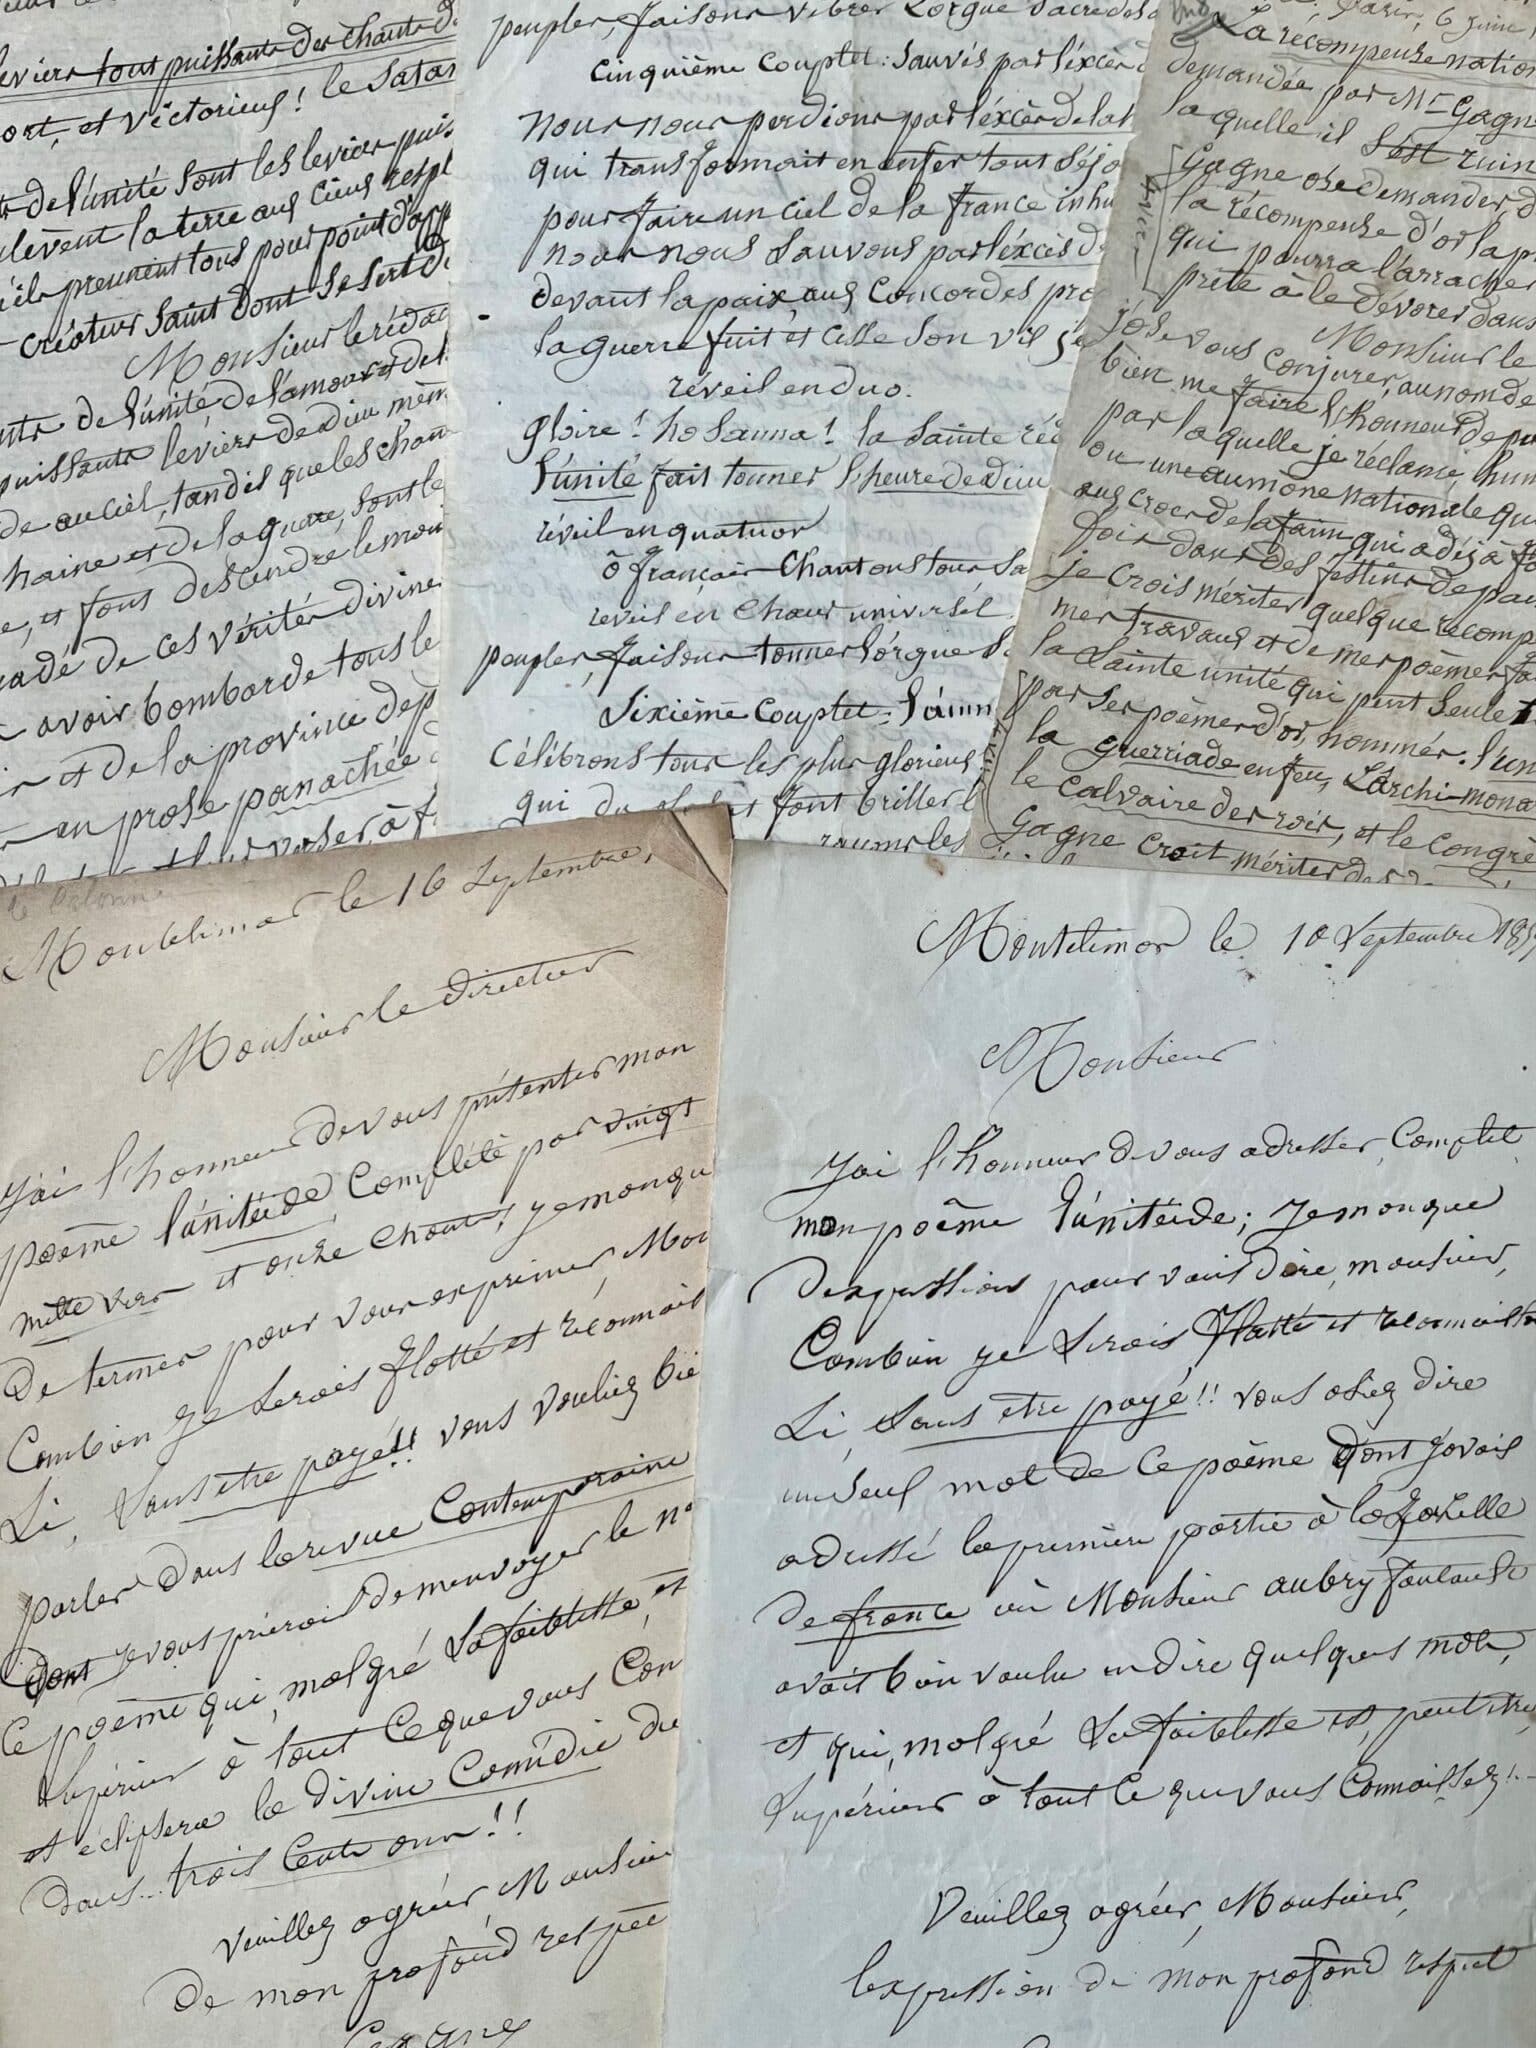 leviers tout puissants des chants d
ort, et victorieus! le Satan
de l'unité sont les leviers puis
ulèvent la terre aus cieus resple
prennent tous pour point d'app
créateur saint dont se sert D
Monsieur le rédac
de l'unité, de l'amour et de l
puissants leviers de dieu mêm
de au ciel, tandis que les chan
haine et de la guerre, sont le
e, et font descendre le mon
uadé de ces vérités divine
avoir bombardé tous le
et de la province dep
en prose panachée
peuples, faisons vibrer l'orgue sacré de s
cinquième couplet: sauvés par l'éxcès d
nous nous perdions par l'éxcès de la h
qui transformait en enfer tout séjo
pour faire un ciel de la france inhu
nous nous sauvons par l'éxcès d
devant la paix, aus concordes pro
la guerre fuit et cesse son vil j
réveil en duo.
gloire! hosanna! la sainte ré
l'unité fait tonner l'heure de dieu
réveil en quatuor
ô français chantons tous sa
reveil en chœur universel
peuples, faisons tonner l'orgue s
sixième couplet: l'aim
Célébrons tous les plus glorieus
qui du font briller l
Paris, 6 juin,
La récompense nation
demandée par Mr Gagne
laquelle il s'est ruin
Gagne ose demander, d
la récompense d'or la pl
qui pourra l'arracher
prête à le dévorer dans
Monsieur le
j'ose vous conjurer, au nom de
bien me faire l'honneur de pu
par laquelle je réclame, hum
ou une aumône nationale qu
aus crocs de la faim qui a déjà fa
fois dans des festins de pai
je crois mériter quelque récomp
mes travaus et de mes poèmes fa
la sainte unité qui peut seule
par ses poèmes d'or, nommés: l'un
la guerriade en feu, l'archi-mona
le calvaire des rois, et le congrè
Gagne croit mériter des
Montélimar le 16 Septembre,
Monsieur le directeur
J'ai l'honneur de vous présenter mon
poème l'unitéide complété par vingt
mille vers et onze chants; je manqu
de termes pour vous exprimer, Mon
Combien je serais flatté et reconnais
si, sans être payé!! vous vouliez bie
parler dans la revue Contemporaine
dont je vous prierais de m'envoyer le n°
ce poème qui, malgré sa faiblesse, est
supérieur à tout ce que vous Con
et éclipsera la divine Comédie du
dans... trois cents ans!!
Veuillez agréer, Monsieur
de mon profond respec
Gagne
Montélimar le 10 Septembre 185
Monsieur
J'ai l'honneur de vous adresser, Complet,
mon poème l'unitéide; je manque
d'expressions pour vous dire, monsieur,
Combien je serais flatté et reconnaissan
si, sans être payé!! vous osiez dire
un seul mot de ce poème dont j'avais
adressé la première partie à la Gazette
de france où Monsieur aubry foucault
avait bien voulu en dire quelques mots,
et qui, malgré sa faiblesse est, peut être,
supérieur à tout ce que vous Connaissez!..
Veuillez agréer, Monsieur,
l'expression de mon profond respect